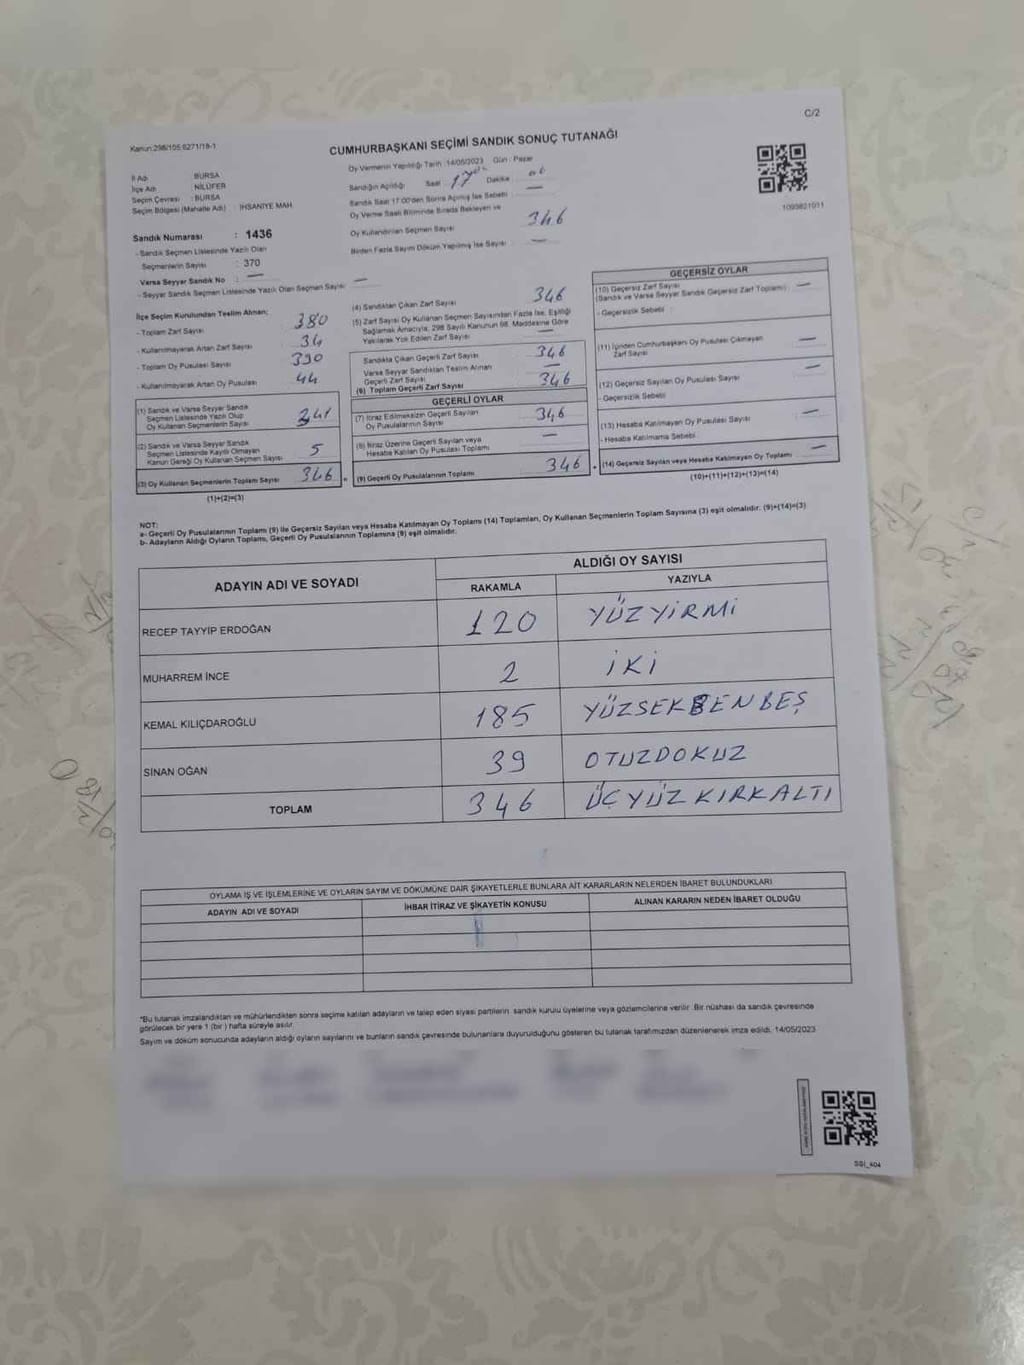 C/2
Kanun:298/105:6271/19-1
CUMHURBAŞKANI SEÇİMİ SANDIK SONUÇ TUTANAĞI
İl Adı : BURSA
İlçe Adı : NİLÜFER
Seçim Çevresi : BURSA
Seçim Bölgesi (Mahalle Adı) : İHSANİYE MAH.
Oy Vermenin Yapıldığı Tarih :14/05/2023 Gün : Pazar
Sandığın Açıldığı Saat 17 Dakika
Sandık Saat 17:00'den Sonra Açılmış İse Sebebi : —
Oy Verme Saati Bitiminde Sırada Bekleyen ve
Oy Kullandırılan Seçmen Sayısı : 346
Birden Fazla Sayım Döküm Yapılmış İse Sayısı : —
1093821011
Sandık Numarası : 1436
- Sandık Seçmen Listesinde Yazılı Olan
Seçmenlerin Sayısı : 370
Varsa Seyyar Sandık No : —
- Seyyar Sandık Seçmen Listesinde Yazılı Olan Seçmen Sayısı : —
İlçe Seçim Kurulundan Teslim Alınan;
- Toplam Zarf Sayısı : 380
- Kullanılmayarak Artan Zarf Sayısı : 34
- Toplam Oy Pusulası Sayısı : 390
- Kullanılmayarak Artan Oy Pusulası : 44
(1) Sandık ve Varsa Seyyar Sandık
Seçmen Listesinde Yazılı Olup
Oy Kullanan Seçmenlerin Sayısı 341
(2) Sandık ve Varsa Seyyar Sandık
Seçmen Listesinde Kayıtlı Olmayan
Kanun Gereği Oy Kullanan Seçmen Sayısı 5
(3) Oy Kullanan Seçmenlerin Toplam Sayısı 346
(1)+(2)=(3)
(4) Sandıktan Çıkan Zarf Sayısı : 346
(5) Zarf Sayısı Oy Kullanan Seçmen Sayısından Fazla İse, Eşitliği
Sağlamak Amacıyla; 298 Sayılı Kanunun 98. Maddesine Göre
Yakılarak Yok Edilen Zarf Sayısı : —
Sandıkta Çıkan Geçerli Zarf Sayısı 346
Varsa Seyyar Sandıktan Teslim Alınan
Geçerli Zarf Sayısı —
(6) Toplam Geçerli Zarf Sayısı 346
GEÇERLİ OYLAR
(7) İtiraz Edilmeksizin Geçerli Sayılan
Oy Pusulasının Sayısı 346
(8) İtiraz Üzerine Geçerli Sayılan veya
Hesaba Katılan Oy Pusulası Toplamı —
(9) Geçerli Oy Pusulalarının Toplamı 346
GEÇERSİZ OYLAR
(10) Geçersiz Zarf Sayısı
(Sandık ve Varsa Seyyar Sandık Geçersiz Zarf Toplamı) : —
- Geçersizlik Sebebi :
(11) İçinden Cumhurbaşkanı Oy Pusulası Çıkmayan
Zarf Sayısı : —
(12) Geçersiz Sayılan Oy Pusulası Sayısı : —
- Geçersizlik Sebebi :
(13) Hesaba Katılmayan Oy Pusulası Sayısı : —
- Hesaba Katılmama Sebebi :
(14) Geçersiz Sayılan veya Hesaba Katılmayan Oy Toplamı —
(10)+(11)+(12)+(13)=(14)
NOT:
a- Geçerli Oy Pusulalarının Toplamı (9) ile Geçersiz Sayılan veya Hesaba Katılmayan Oy Toplamı (14) Toplamları, Oy Kullanan Seçmenlerin Toplam Sayısına (3) eşit olmalıdır. (9)+(14)=(3)
b- Adayların Aldığı Oyların Toplamı, Geçerli Oy Pusulalarının Toplamına (9) eşit olmalıdır.
ADAYIN ADI VE SOYADI
ALDIĞI OY SAYISI
RAKAMLA YAZIYLA
RECEP TAYYİP ERDOĞAN 120 YÜZYİRMİ
MUHARREM İNCE 2 İKİ
KEMAL KILIÇDAROĞLU 185 YÜZSEKSENBEŞ
SİNAN OĞAN 39 OTUZDOKUZ
TOPLAM 346 ÜÇYÜZKIRKALTI
OYLAMA İŞ VE İŞLEMLERİNE VE OYLARIN SAYIM VE DÖKÜMÜNE DAİR ŞİKAYETLERLE BUNLARA AİT KARARLARIN NELERDEN İBARET BULUNDUKLARI
ADAYIN ADI VE SOYADI İHBAR İTİRAZ VE ŞİKAYETİN KONUSU ALINAN KARARIN NEDEN İBARET OLDUĞU
*Bu tutanak imzalandıktan ve mühürlendikten sonra seçime katılan adayların ve talep eden siyasi partilerin sandık kurulu üyelerine veya gözlemcilerine verilir. Bir nüshası da sandık çevresinde
görülecek bir yere 1 (bir) hafta süreyle asılır.
Sayım ve döküm sonucunda adayların aldığı oyların sayılarını ve bunların sandık çevresinde bulunanlara duyurulduğunu gösteren bu tutanak tarafımızdan düzenlenerek imza edildi. 14/05/2023
SSI_404